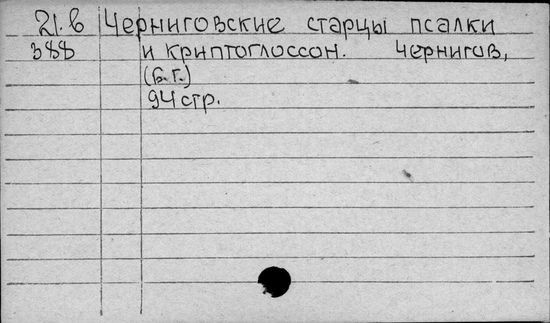 21.в Черниговские старцы псалки
388 и криптоглоссон. Чернигов,
(б.г.)
94 стр.